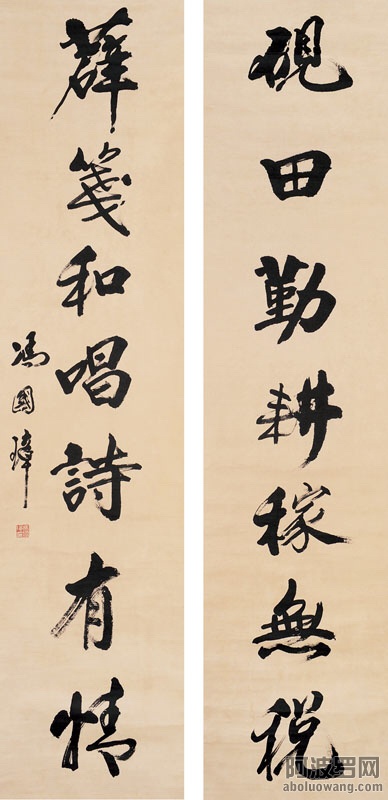 硯田勤耕稼無税
薛箋和唱詩有情
馮國璋
阿波罗网
aboluowang.com